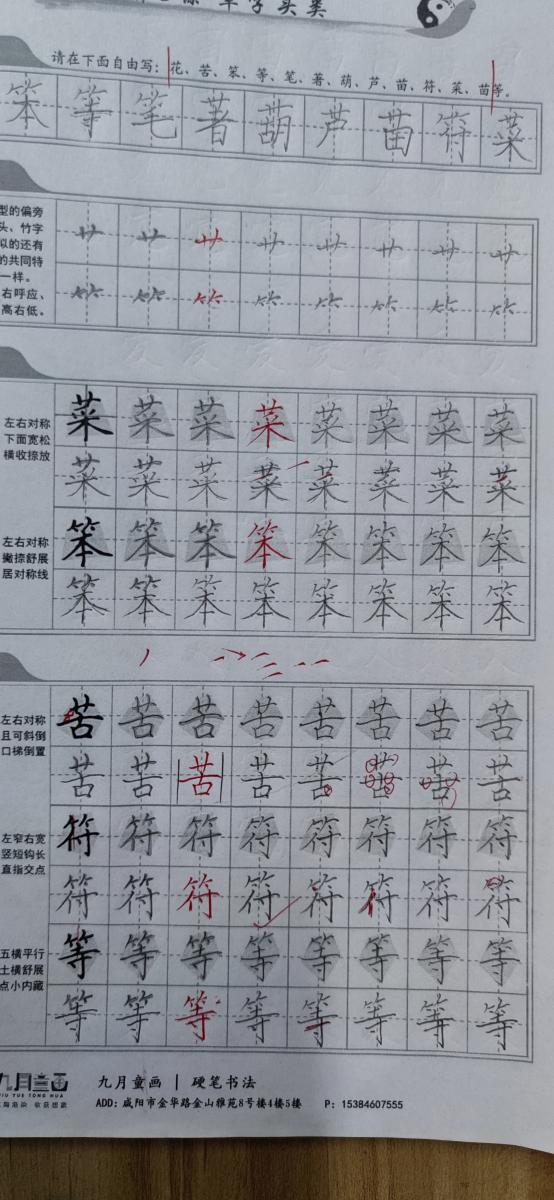 草字头类
请在下面自由写：花、苦、笨、等、笔、著、葫、芦、苗、符、菜、苗等。
笨 等 笔 著 葫 芦 苗 符 菜
型的偏旁
头、竹字
似的还有
的共同特
一样。
右呼应、
高右低。
艹 艹 艹 艹 艹 艹 艹 艹
⺮ ⺮ ⺮ ⺮ ⺮ ⺮ ⺮ ⺮
左右对称
下面宽松
横收捺放
菜 菜 菜 菜 菜 菜 菜 菜
菜 菜 菜 菜 菜 菜 菜 菜
左右对称
撇捺舒展
居对称线
笨 笨 笨 笨 笨 笨 笨 笨
笨 笨 笨 笨 笨 笨 笨 笨
左右对称
且可斜倒
口梯倒置
苦 苦 苦 苦 苦 苦 苦 苦
苦 苦 苦 苦 苦 苦 苦 苦
左窄右宽
竖短钩长
直指交点
符 符 符 符 符 符 符 符
符 符 符 符 符 符 符 符
五横平行
土横舒展
点小内藏
等 等 等 等 等 等 等 等
等 等 等 等 等 等 等 等
九月童画
JIU YUE TONG HUA
九月童画 | 硬笔书法
ADD: 咸阳市金华路金山雅苑8号楼4楼5楼 P: 15384607555